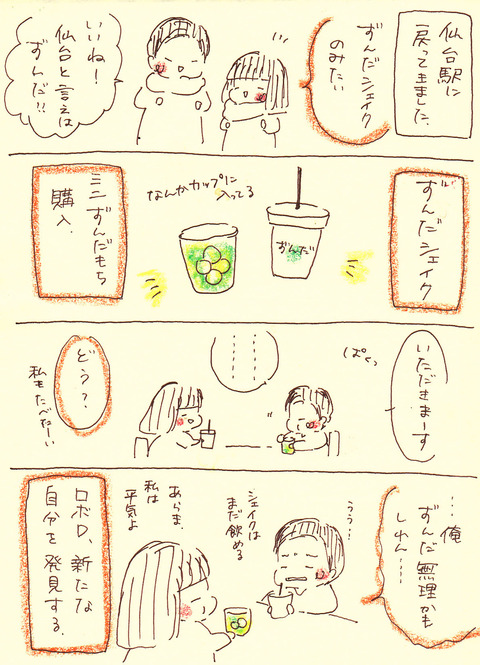 仙台駅に
戻ってきました。
ずんだシェイク
のみたい
いいね!
仙台と言えば
ずんだ!!
ずんだシェイク
ずんだ
なんかカップに
入ってる
ミニずんだもち
購入.
いただきまーす
ぱくっ
どう?
私もたべたーい
……俺
ずんだ無理かも
しれん……
うう…
シェイクは
まだ飲める
あらま、
私は
平気よ
ロボロ、新たな
自分を発見する.